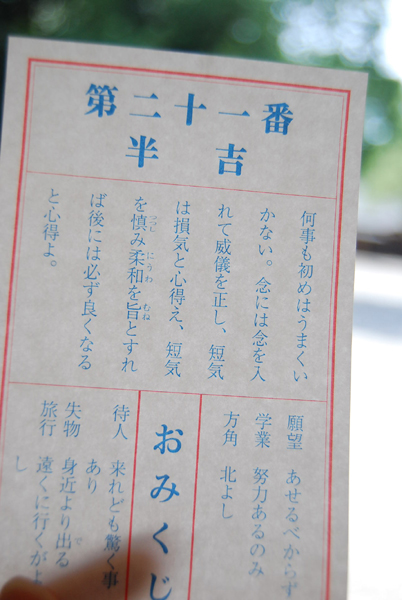 第二十一番
半吉
何事も初めはうまくい
かない。念には念を入
れて威儀を正し、短気
は損気と心得え、短気
を慎み柔和を旨とすれ
ば後には必ず良くなる
と心得よ。
願望 あせるべからず
学業 努力あるのみ
方角 北よし
おみくじ
待人 来れども驚く事
あり
失物 身近より出る
旅行 遠くに行くがよ
し